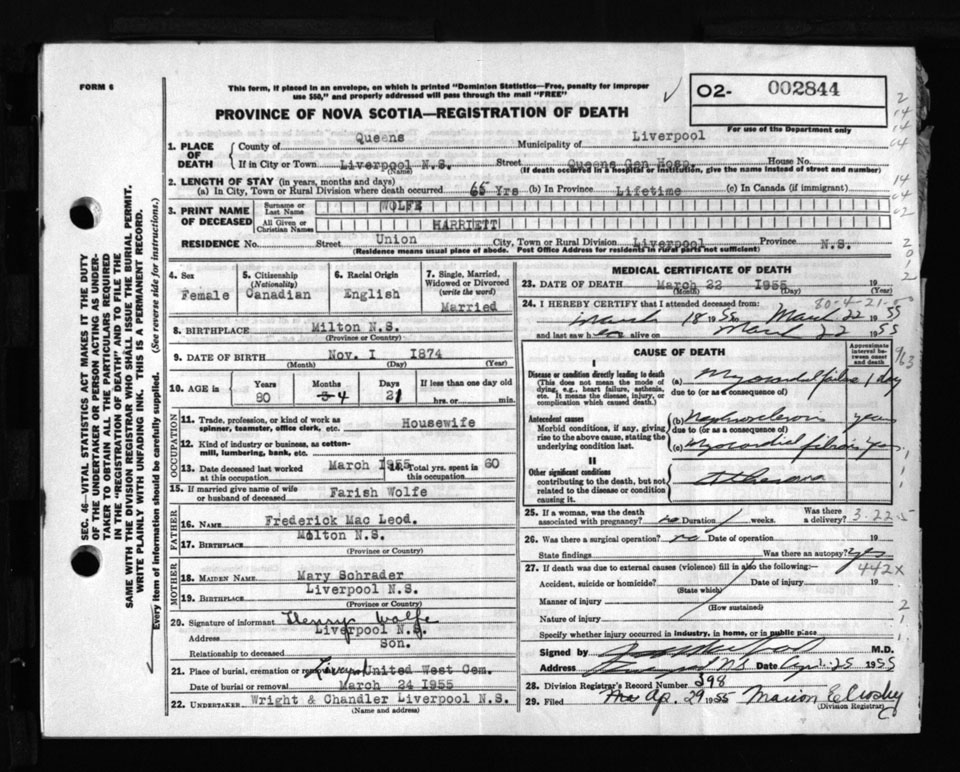 FORM 6
This form, if placed in an envelope, on which is printed "Dominion Statistics—Free, penalty for improper
use $50," and properly addressed will pass through the mail "FREE"
02- 002844
For use of the Department only
PROVINCE OF NOVA SCOTIA—REGISTRATION OF DEATH
SEC. 46—VITAL STATISTICS ACT MAKES IT THE DUTY
OF THE UNDERTAKER OR PERSON ACTING AS UNDER-
TAKER TO OBTAIN ALL THE PARTICULARS REQUIRED
IN THE "REGISTRATION OF DEATH" AND TO FILE THE
SAME WITH THE DIVISION REGISTRAR WHO SHALL ISSUE THE BURIAL PERMIT.
WRITE PLAINLY WITH UNFADING INK. THIS IS A PERMANENT RECORD.
Every item of information should be carefully supplied. (See reverse side for instructions.)
1. PLACE OF DEATH
County of Queens Municipality of Liverpool
If in City or Town Liverpool N.S. Street Queens Gen Hosp. House No.
(Name) (If death occurred in a hospital or institution, give the name instead of street and number)
2. LENGTH OF STAY (in years, months and days)
(a) In City, Town or Rural Division where death occurred 65 Yrs (b) In Province Lifetime (c) In Canada (if immigrant)
3. PRINT NAME OF DECEASED
Surname or Last Name WOLFE
All Given or Christian Names HARRIETT
RESIDENCE No. Street Union City, Town or Rural Division Liverpool Province N.S.
(Residence means usual place of abode. Post Office Address for residents in rural parts not sufficient)
4. Sex Female
5. Citizenship (Nationality) Canadian
6. Racial Origin English
7. Single, Married, Widowed or Divorced (write the word) Married
8. BIRTHPLACE Milton N.S.
(Province or Country)
9. DATE OF BIRTH Nov. 1 1874
(Month) (Day) (Year)
10. AGE in Years 80 Months 4 Days 21 If less than one day old hrs. or min.
OCCUPATION
11. Trade, profession, or kind of work as spinner, teamster, office clerk, etc. Housewife
12. Kind of industry or business, as cotton-mill, lumbering, bank, etc.
13. Date deceased last worked at this occupation March 1955 14. Total yrs. spent in this occupation 60
15. If married give name of wife or husband of deceased Farish Wolfe
FATHER
16. NAME Frederick Mac Leod.
17. BIRTHPLACE Molton N.S.
(Province or Country)
MOTHER
18. MAIDEN NAME Mary Schrader
19. BIRTHPLACE Liverpool N.S.
(Province or Country)
20. Signature of informant Henry Wolfe
Address Liverpool N.S.
Relationship to deceased Son.
21. Place of burial, cremation or United West Cem.
Date of burial or removal March 24 1955
22. UNDERTAKER Wright & Chandler Liverpool N.S.
(Name and address)
MEDICAL CERTIFICATE OF DEATH
23. DATE OF DEATH March 22 1955 19
(Month) (Day)
80-4-21-
24. I HEREBY CERTIFY that I attended deceased from:
March 18 1955 March 22 1955
and last saw her alive on March 22 1955
CAUSE OF DEATH
Approximate interval between onset and death
I
Disease or condition directly leading to death
(This does not mean the mode of dying, e.g., heart failure, asthenia, etc. It means the disease, injury, or complication which caused death.)
(a) Myocardial failure 1 day
due to (or as a consequence of)
Antecedent causes
Morbid conditions, if any, giving rise to the above cause, stating the underlying condition last.
(b) Nephrosclerosis years
due to (or as a consequence of)
(c) Myocardial fibrosis yrs
II
Other significant conditions
contributing to the death, but not related to the disease or condition causing it.
25. If a woman, was the death associated with pregnancy? no Duration weeks. Was there a delivery?
3-22-5
26. Was there a surgical operation? no Date of operation 19
State findings Was there an autopsy? yes
27. If death was due to external causes (violence) fill in also the following:
442X
Accident, suicide or homicide? Date of injury 19
(State which)
Manner of injury
(How sustained)
Nature of injury
Specify whether injury occurred in industry, in home, or in public place
Signed by M.D.
Address Liverpool N.S. Date April 25 1955
28. Division Registrar's Record Number 398
29. Filed Ap. 29 1955 Marion E Crosby
(Division Registrar)